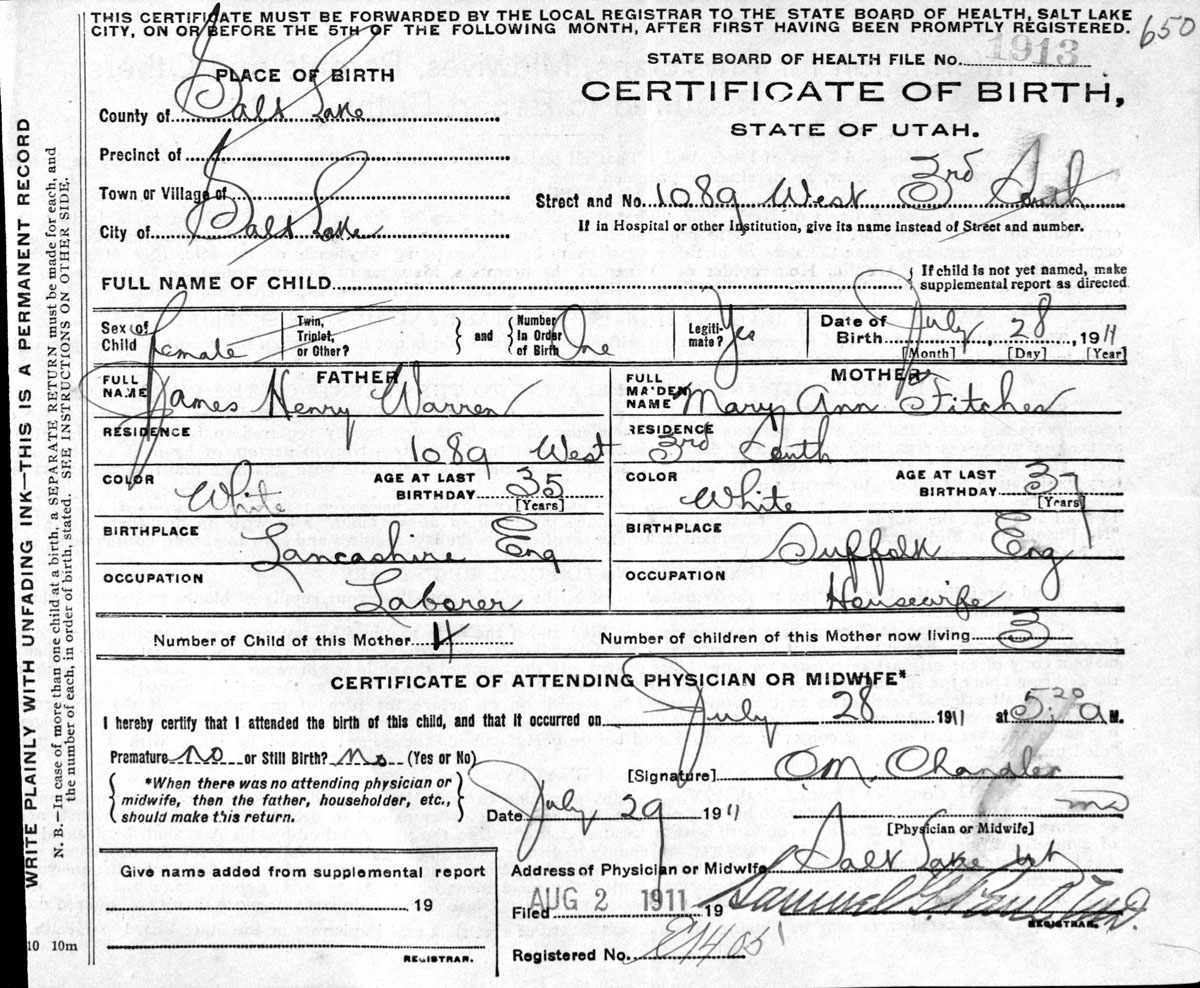 THIS CERTIFICATE MUST BE FORWARDED BY THE LOCAL REGISTRAR TO THE STATE BOARD OF HEALTH, SALT LAKE
CITY, ON OR BEFORE THE 5TH OF THE FOLLOWING MONTH, AFTER FIRST HAVING BEEN PROMPTLY REGISTERED.
650
WRITE PLAINLY WITH UNFADING INK—THIS IS A PERMANENT RECORD
N. B.—In case of more than one child at a birth, a SEPARATE RETURN must be made for each, and
the number of each, in order of birth, stated. SEE INSTRUCTIONS ON OTHER SIDE.
PLACE OF BIRTH
County of Salt Lake
Precinct of
Town or Village of
City of Salt Lake
STATE BOARD OF HEALTH FILE No. 1913
CERTIFICATE OF BIRTH,
STATE OF UTAH.
Street and No. 1089 West 3rd South
If in Hospital or other Institution, give its name instead of Street and number.
FULL NAME OF CHILD
If child is not yet named, make
supplemental report as directed
Sex of Child Female
Twin, Triplet, or Other?
and Number In Order of Birth One
Legiti-mate? Yes
Date of Birth July 28 1911
[Month] [Day] [Year]
FATHER
FULL NAME James Henry Warren
RESIDENCE 1089 West 3rd South
COLOR White
AGE AT LAST BIRTHDAY 35 [Years]
BIRTHPLACE Lancashire Eng
OCCUPATION Laborer
MOTHER
FULL MAIDEN NAME Mary Ann Fitches
RESIDENCE
COLOR White
AGE AT LAST BIRTHDAY [Years]
BIRTHPLACE Suffolk Eng
OCCUPATION Housewife
Number of Child of this Mother 4
Number of children of this Mother now living 3
CERTIFICATE OF ATTENDING PHYSICIAN OR MIDWIFE*
I hereby certify that I attended the birth of this child, and that it occurred on July 28 1911 at 5:20 a M.
Premature no or Still Birth? no (Yes or No)
*When there was no attending physician or
midwife, then the father, householder, etc.,
should make this return.
[Signature] O.M. Chandler
md
[Physician or Midwife]
Date July 29 1911
Address of Physician or Midwife Salt Lake Ut
Give name added from supplemental report
19
REGISTRAR.
Filed AUG 2 1911 19
Samuel G.
REGISTRAR.
Registered No. E1405
10 10m